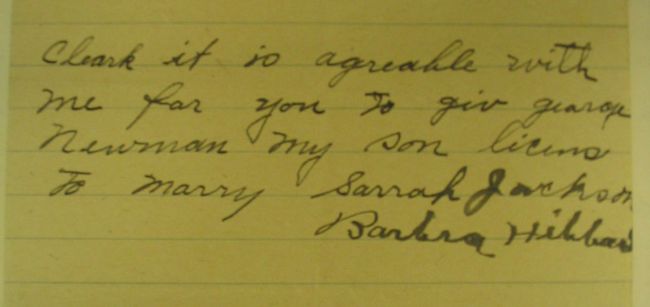 Cleark it is agreable with
me far you to giv george
Newman my son licens
to marry Sarrah Jackson
Barbra Hibbard